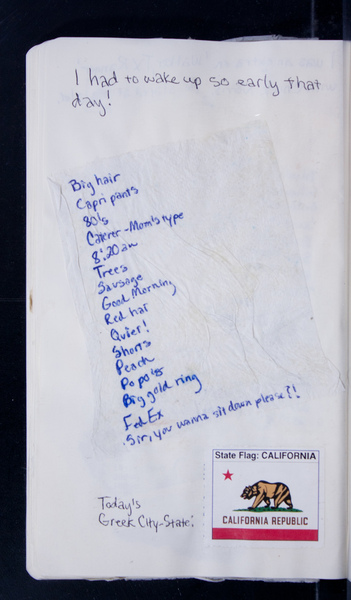 I had to wake up so early that
day!
Big hair
Capri pants
80's
Caterer-Mom's type
8:20 am
Trees
Sausage
Good Morning
Red hat
Quiet!
Shorts
Peach
Popo's
Big gold ring
FedEx
Sir, you wanna sit down please?!
State Flag: CALIFORNIA
CALIFORNIA REPUBLIC
Today's
Greek City-State: